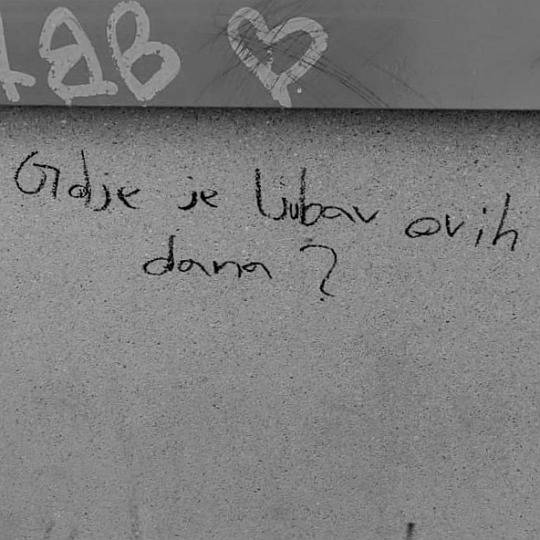 Gdje je ljubav ovih
dana ?